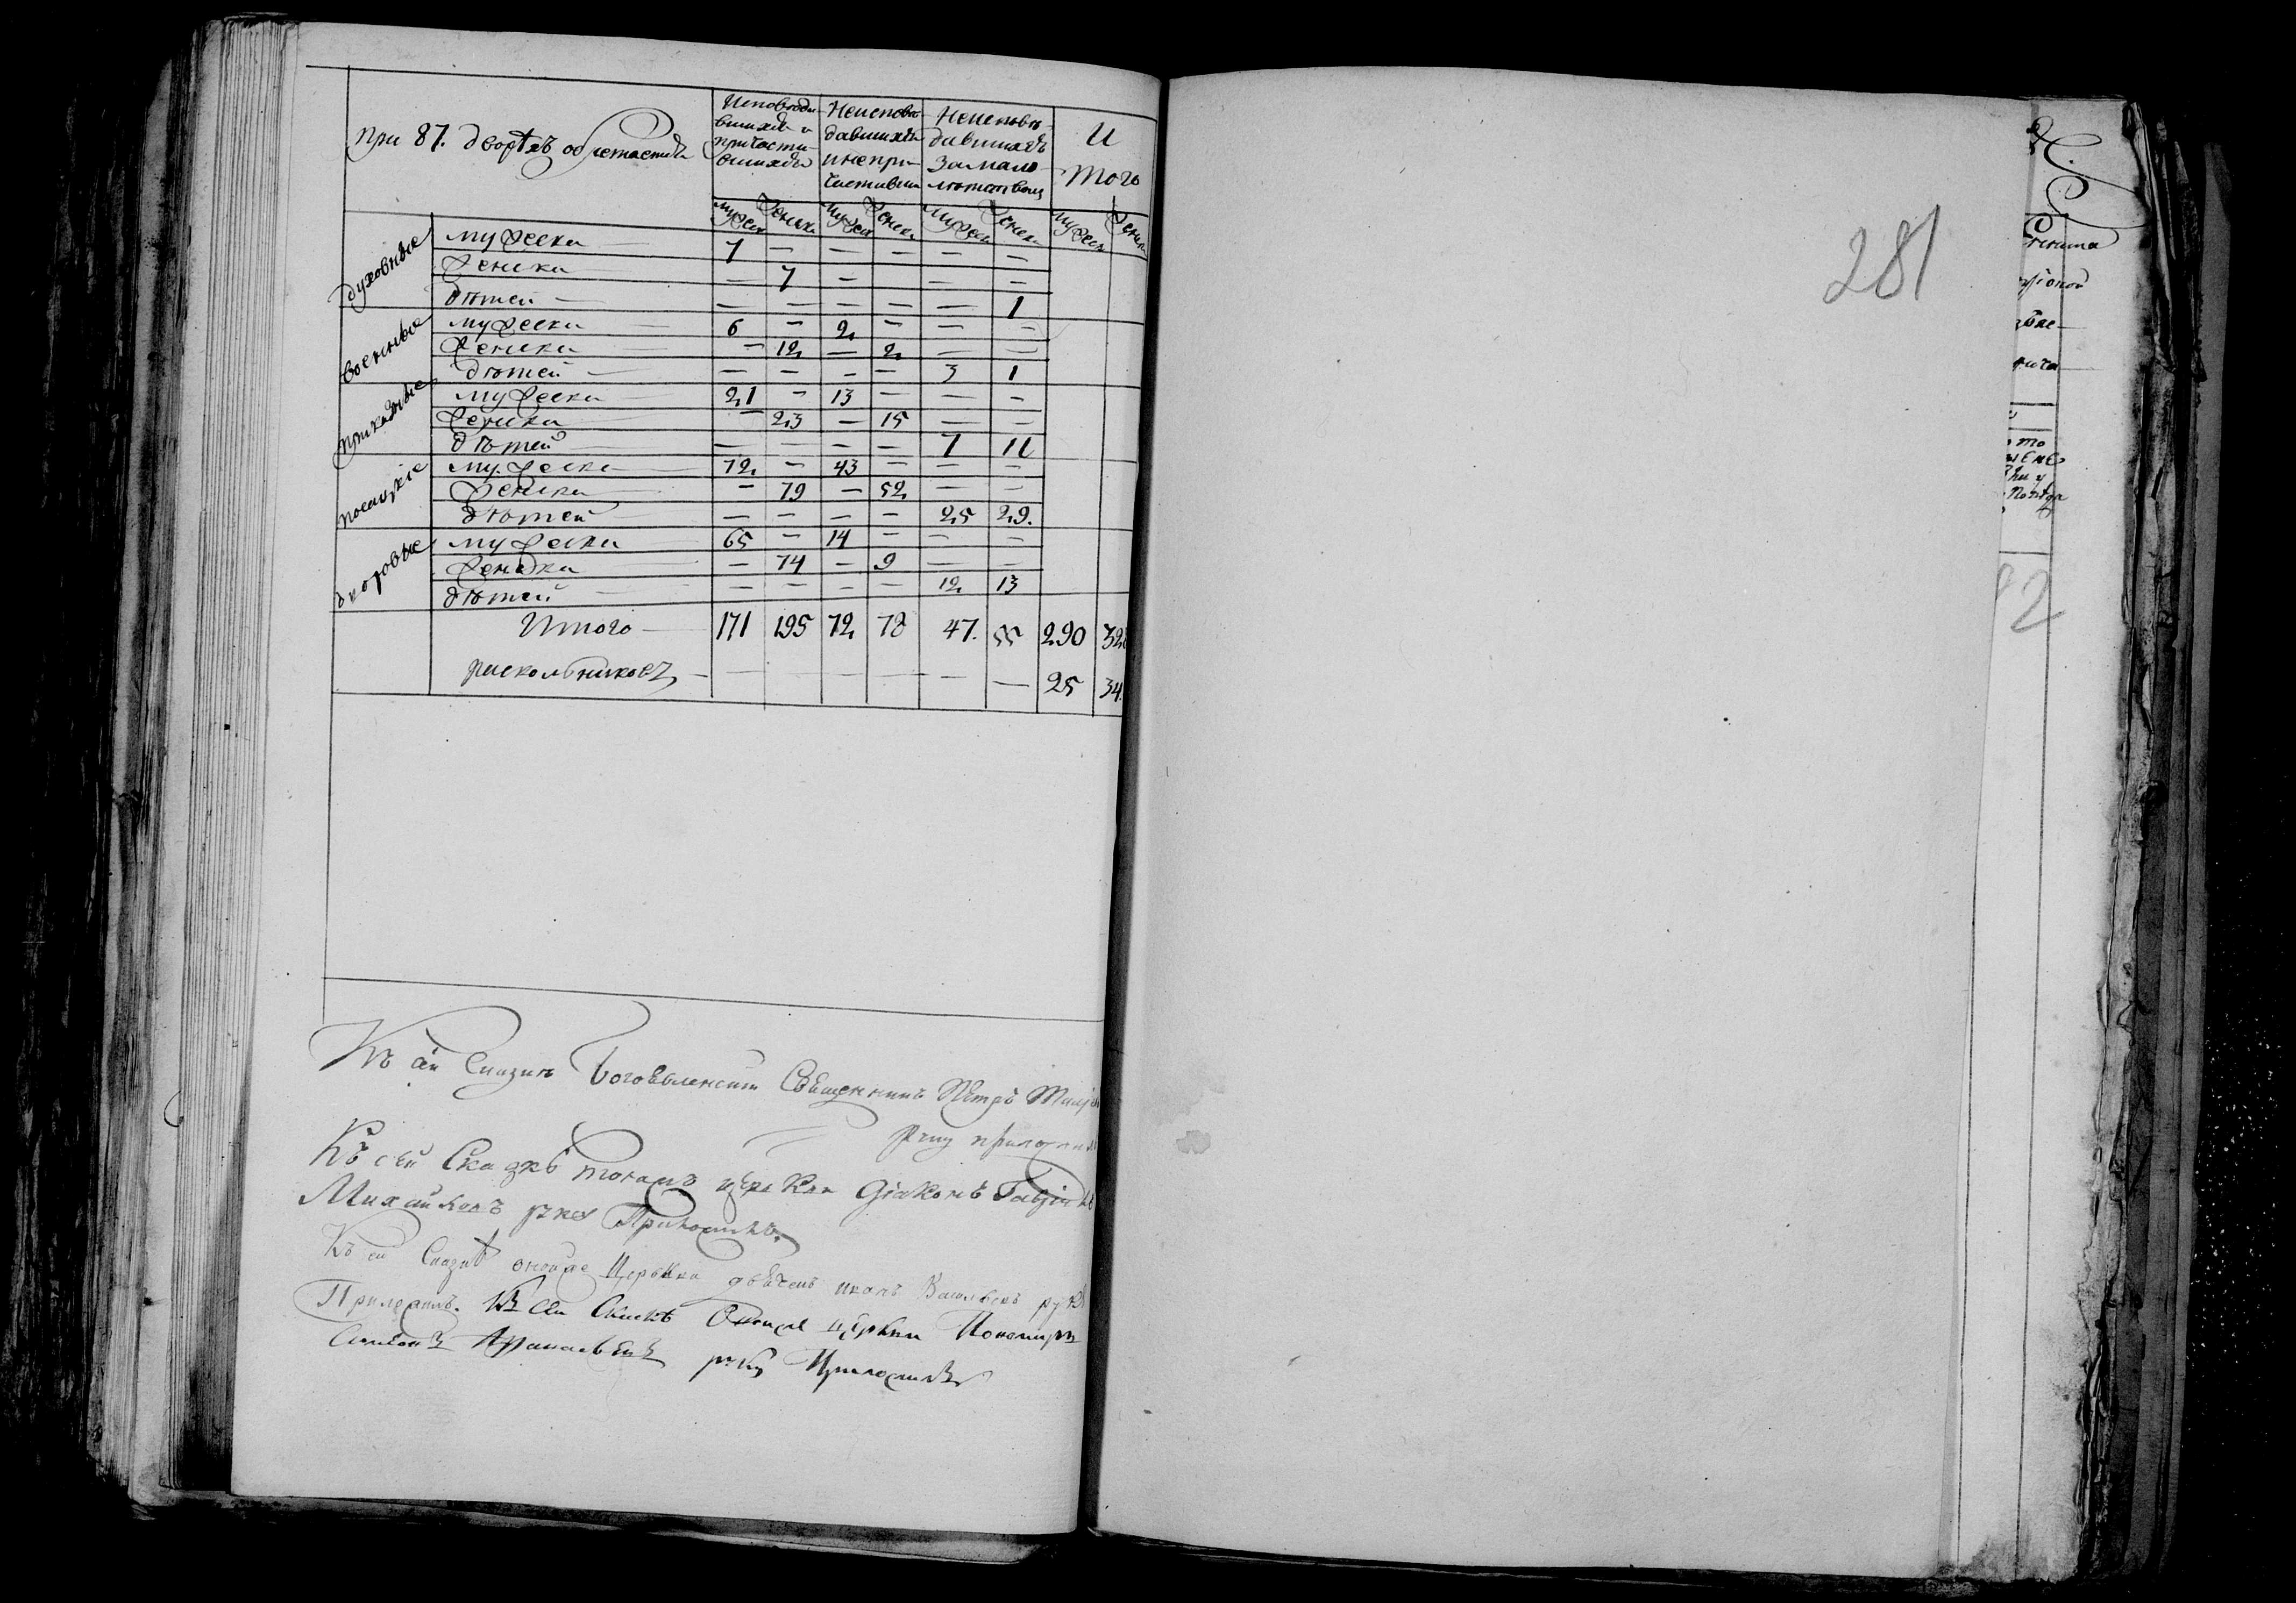 при 87. дворѣхъ обретается
Исповѣда-
вшихся и
причасти-
вшихся
Неисповѣ-
давшихся
и непри-
частивши
Неисповѣ-
давшихся
за мало
лѣтством
И
того
мужеск женска мужеск женска мужеск женска мужеск женска
духовные
мужеска 7 — — — — —
женска — 7 — — —
дѣтей — — — — — 1
военные
мужеска 6 — 2 — — —
женска — 12 — 2 — —
дѣтей — — — — 3 1
приказные
мужеска 21 — 13 — — —
женска — 23 — 15 — —
дѣтей — — — — 7 11
посацкіе
мужеска 72 — 43 — — —
женска — 79 — 52 — —
дѣтей — — — — 25 29.
дворовые
мужеска 65 — 14 — — —
женска — 74 — 9 — —
дѣтей — — — — 12 13
Итого 171 195 72 78 47. 55 290 328
раскольниковъ — — — — — — 25 34.
Къ сей Сказкѣ Богоявленский Священникъ Петръ
руку приложилъ
Къ сей Сказкѣ тоежъ церкви діаконъ
Михайловъ руку Приложилъ.
Къ сей Сказкѣ оной же Церькви дьячекъ иванъ Васильевъ руку
Приложилъ. Къ сей Сказкѣ Оной же церкви Пономарь
Симеонъ Афанасьевъ руку Приложилъ
281